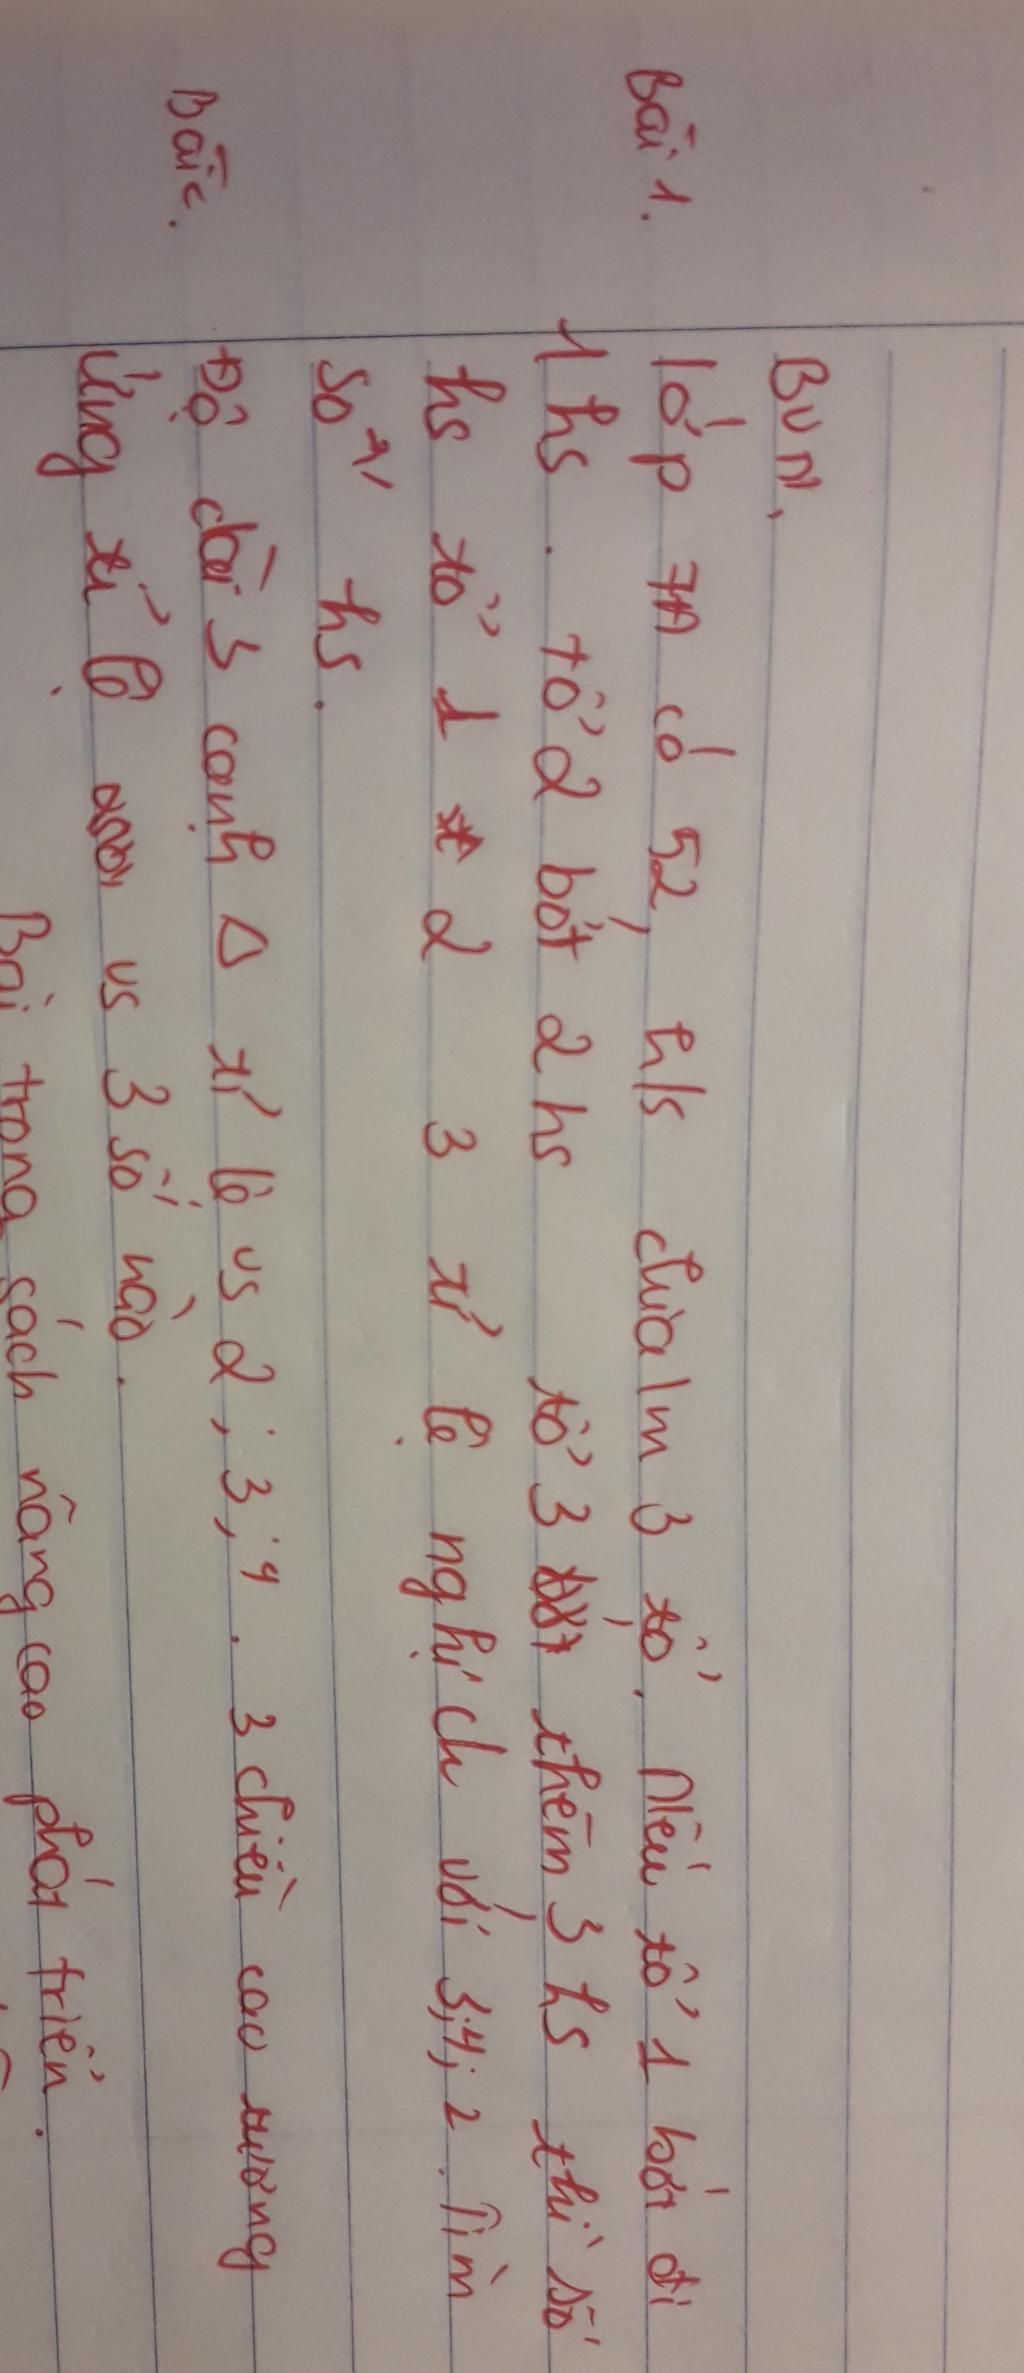 BVN,
Bài 1. lớp 7A có 52 h/s chia lm 3 tổ. Nếu tổ 1 bớt đi
1 hs. tổ 2 bớt 2 hs tổ 3 thêm 3 hs thì số
hs tổ 1 2 3 tỉ lệ nghịch với 3; 4; 2. Tìm
số hs.
Bài 2. Độ dài 3 cạnh Δ tỉ lệ vs 2; 3; 4. 3 chiều cao tương
ứng tỉ lệ vs 3 số nào.
Bài trong sách nâng cao phát triển.